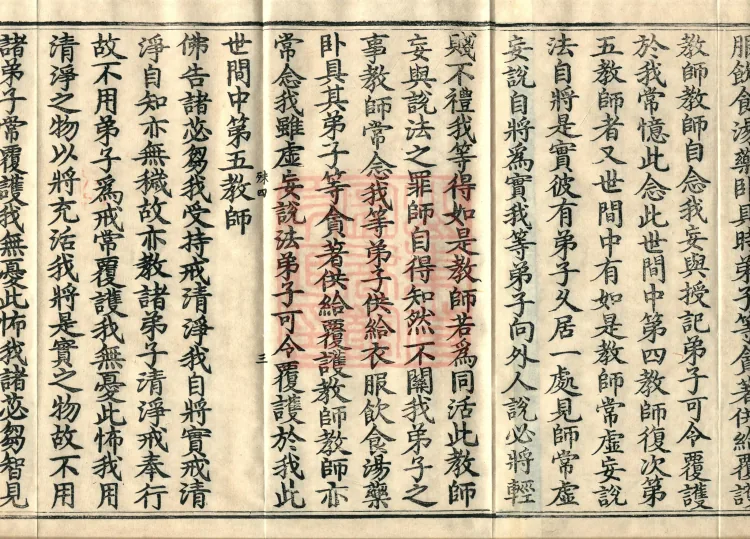 服飲食湯藥臥具時弟子等貪著供給覆護
教師教師自念我妄與授記弟子可令覆護
於我常憶此念此世間中第四教師復次第
五教師者又世間中有如是教師常虛妄說
法自將是實彼有弟子久居一處見師常虛
妄說自將為實我等弟子向外人說必將輕
賤不禮我等得如是教師若為同活此教師
妄與說法之罪師自得知然不關我弟子之
事教師常念我等弟子供給衣服飲食湯藥
臥具其弟子等貪著供給覆護教師教師亦
常念我雖虛妄說法弟子可令覆護於我此
殊四
三
世間中第五教師
佛告諸苾芻我受持戒清淨我自將實戒清
淨自知亦無穢故亦教諸弟子清淨戒奉行
故不用弟子為戒常覆護我無憂此怖我用
清淨之物以將充活我將是實之物故不用
諸弟子常覆護我無憂此怖我諸苾芻智見